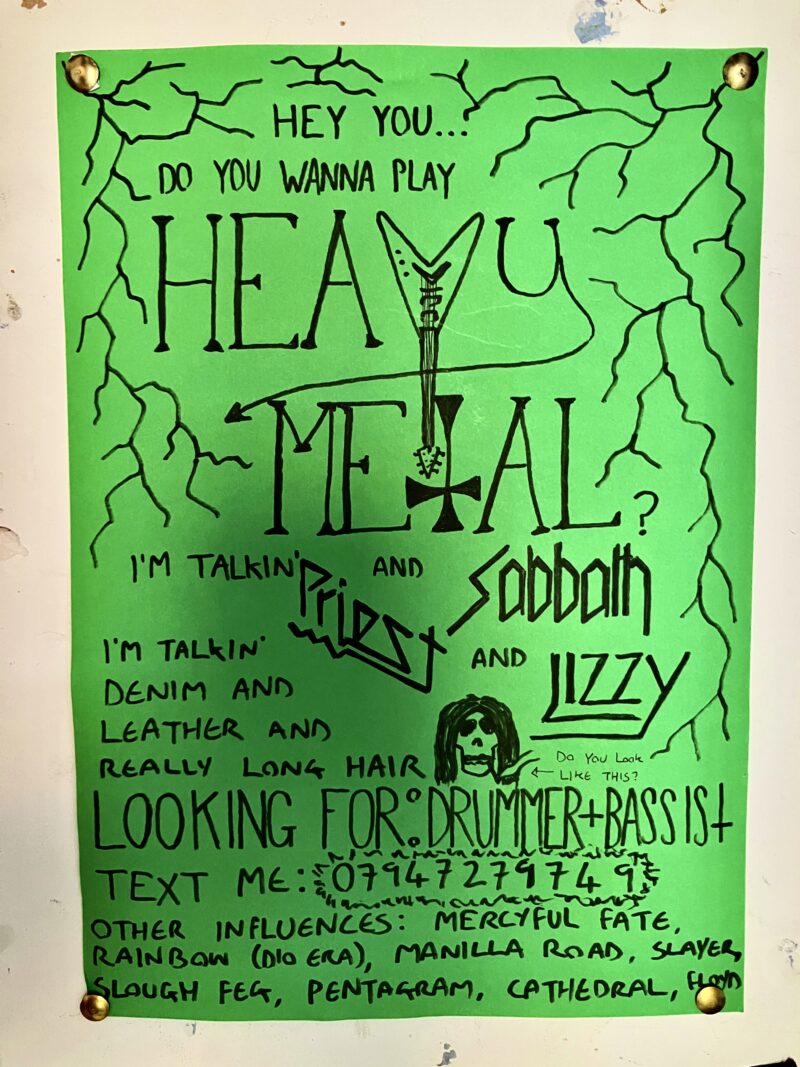 HEY YOU...
DO YOU WANNA PLAY
HEAVY
METAL?
I'M TALKIN' Priest AND Sabbath
AND LIZZY
I'M TALKIN'
DENIM AND
LEATHER AND
REALLY LONG HAIR
DO YOU LOOK
LIKE THIS?
LOOKING FOR: DRUMMER + BASSIST
TEXT ME: 07947279749
OTHER INFLUENCES: MERCYFUL FATE,
RAINBOW (DIO ERA), MANILLA ROAD, SLAYER,
SLOUGH FEG, PENTAGRAM, CATHEDRAL, FLOYD